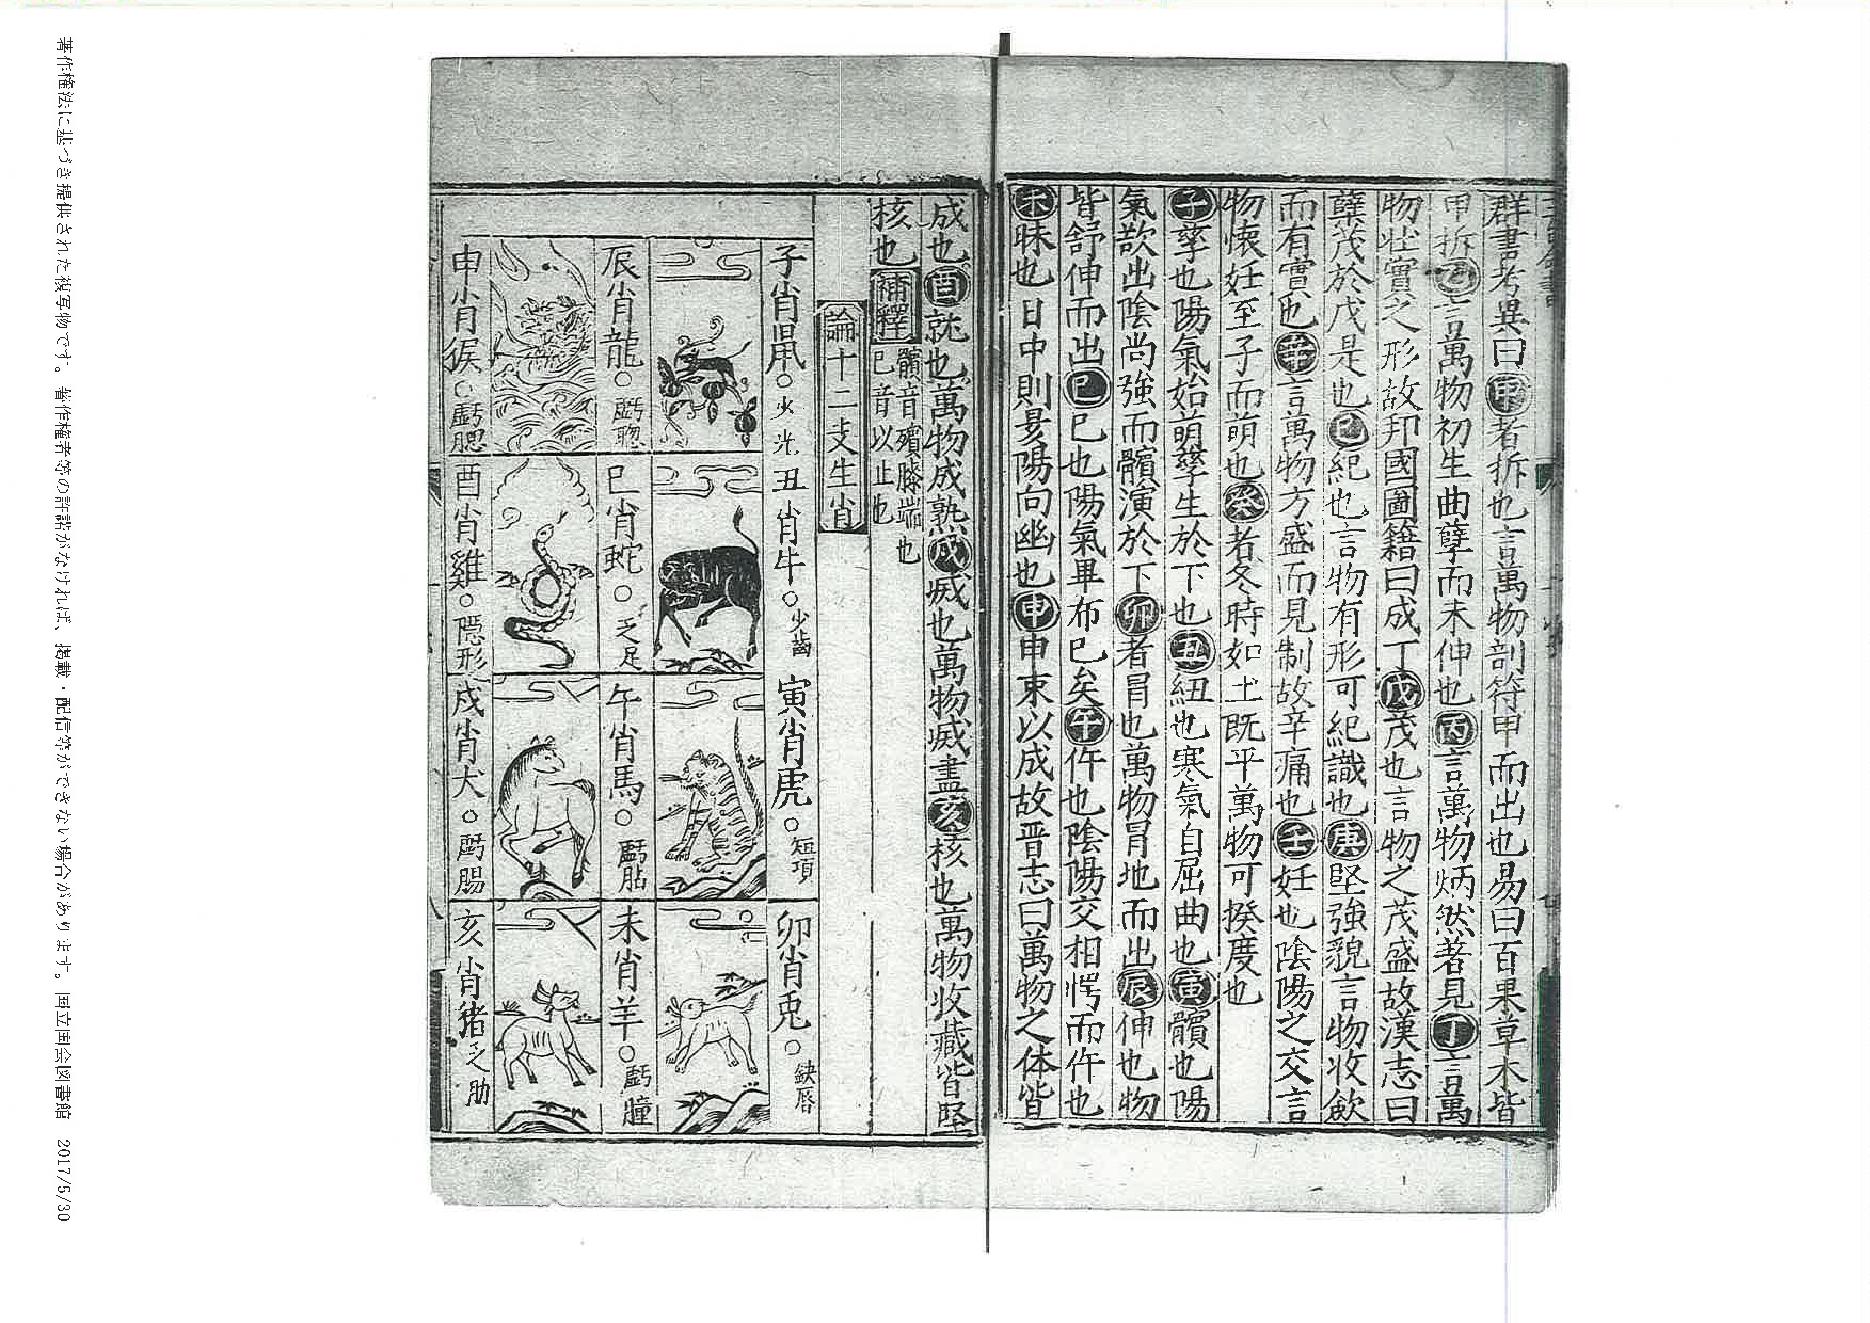 群書考異曰甲者拆也言萬物剖符甲而出也易曰百果草木皆
甲拆乙言萬物初生曲孽而未伸也丙言萬物炳然著見丁言萬
物壯實之形故邦國圖籍曰成丁戊茂也言物之茂盛故漢志曰
蘖茂於戊是也己紀也言物有形可紀識也庚堅強貌言物收斂
而有實也辛言萬物方盛而見制故辛痛也壬妊也陰陽之交言
物懷妊至子而萌也癸者冬時如土既平萬物可揆度也
子孳也陽氣始萌孳生於下也丑紐也寒氣自屈曲也寅髕也陽
氣欲出陰尚強而髕演於下卯者冒也萬物冒地而出辰伸也物
皆舒伸而出巳巳也陽氣畢布已矣午仵也陰陽交相愕而仵也
未昧也日中則昃陽向幽也申申束以成故晋志曰萬物之体皆
成也酉就也萬物成熟戌烕也萬物烕盡亥核也萬物收藏皆堅
核也補釋髕音殯膝端也
巳音以止也
論十二支生肖
子肖鼠○少光
丑肖牛○少齒
寅肖虎○短項
卯肖兎○缺唇
辰肖龍○虧聰
巳肖蛇○乏足
午肖馬○虧
未肖羊○虧瞳
申肖猴○虧腮
酉肖雞○隠形
戌肖犬○虧腸
亥肖猪乏肋
著作権法に基づき提供された複写物です。著作権者等の許諾がなければ、掲載・配信等ができない場合があります。国立国会図書館 2017/5/30